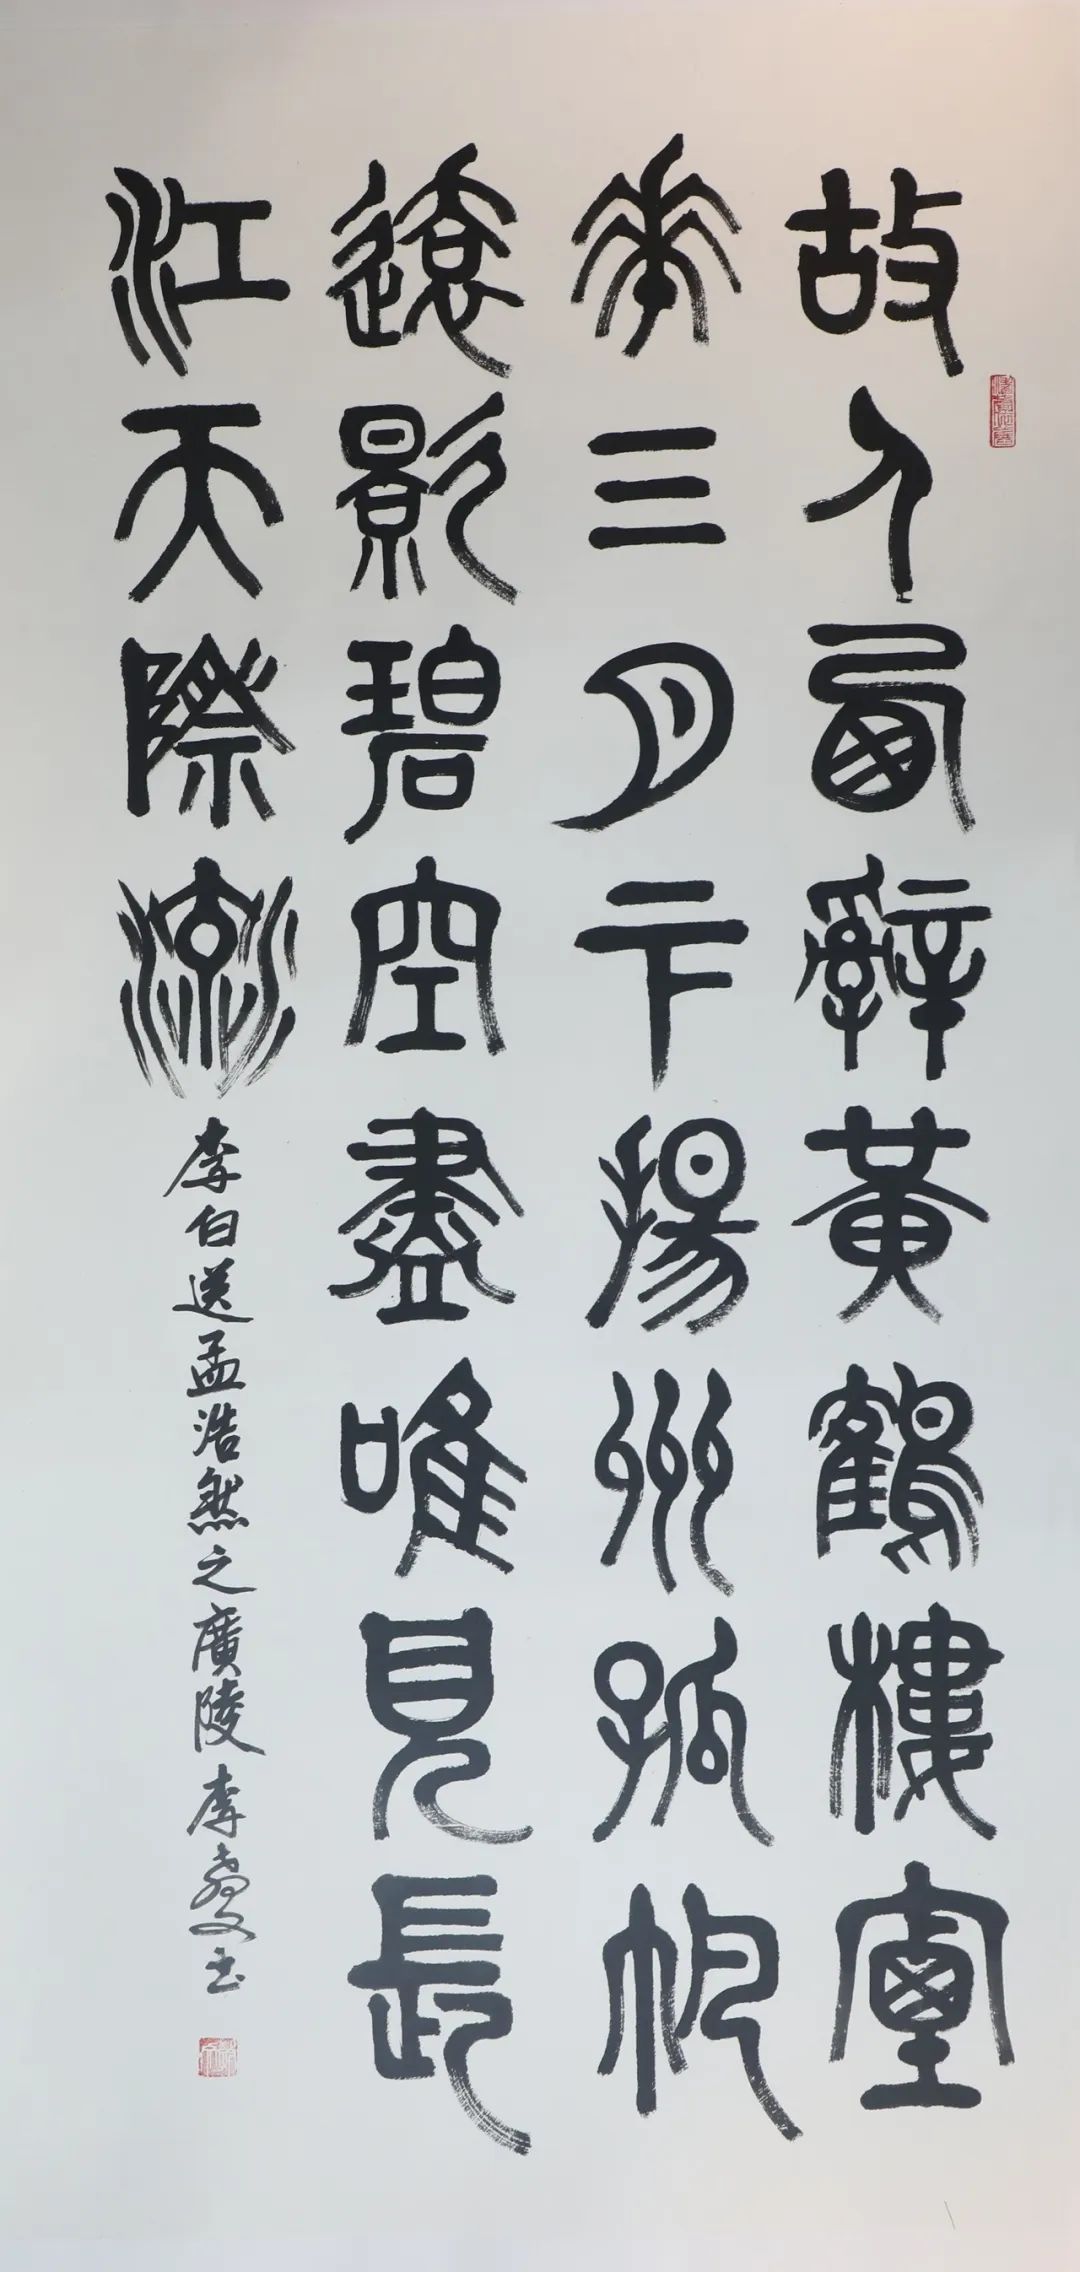 故人西辭黃鶴樓煙
花三月下揚州孤帆
遠影碧空盡唯見長
江天際流
李白送孟浩然之廣陵 李 书